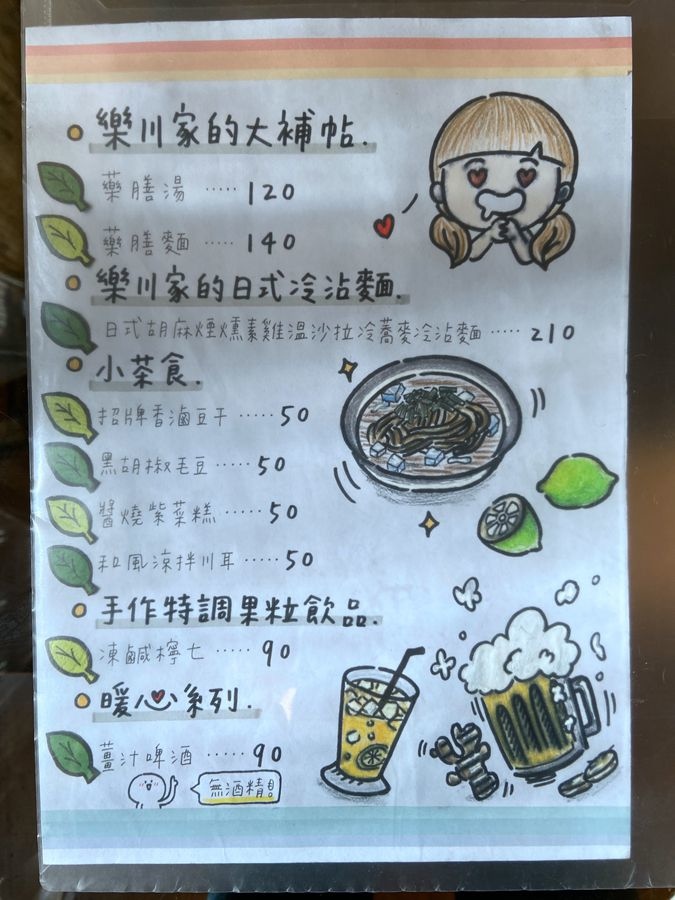 樂川家的大補帖.
藥膳湯 ····· 120
藥膳麵 ····· 140
樂川家的日式冷沾麵.
日式胡麻煙燻素雞溫沙拉冷蕎麥冷沾麵 ····· 210
小茶食.
招牌香滷豆干 ····· 50
黑胡椒毛豆 ····· 50
醬燒紫菜糕 ····· 50
和風涼拌川耳 ····· 50
手作特調果粒飲品.
凍鹹檸七 ····· 90
暖心系列.
薑汁啤酒 ····· 90
無酒精!!